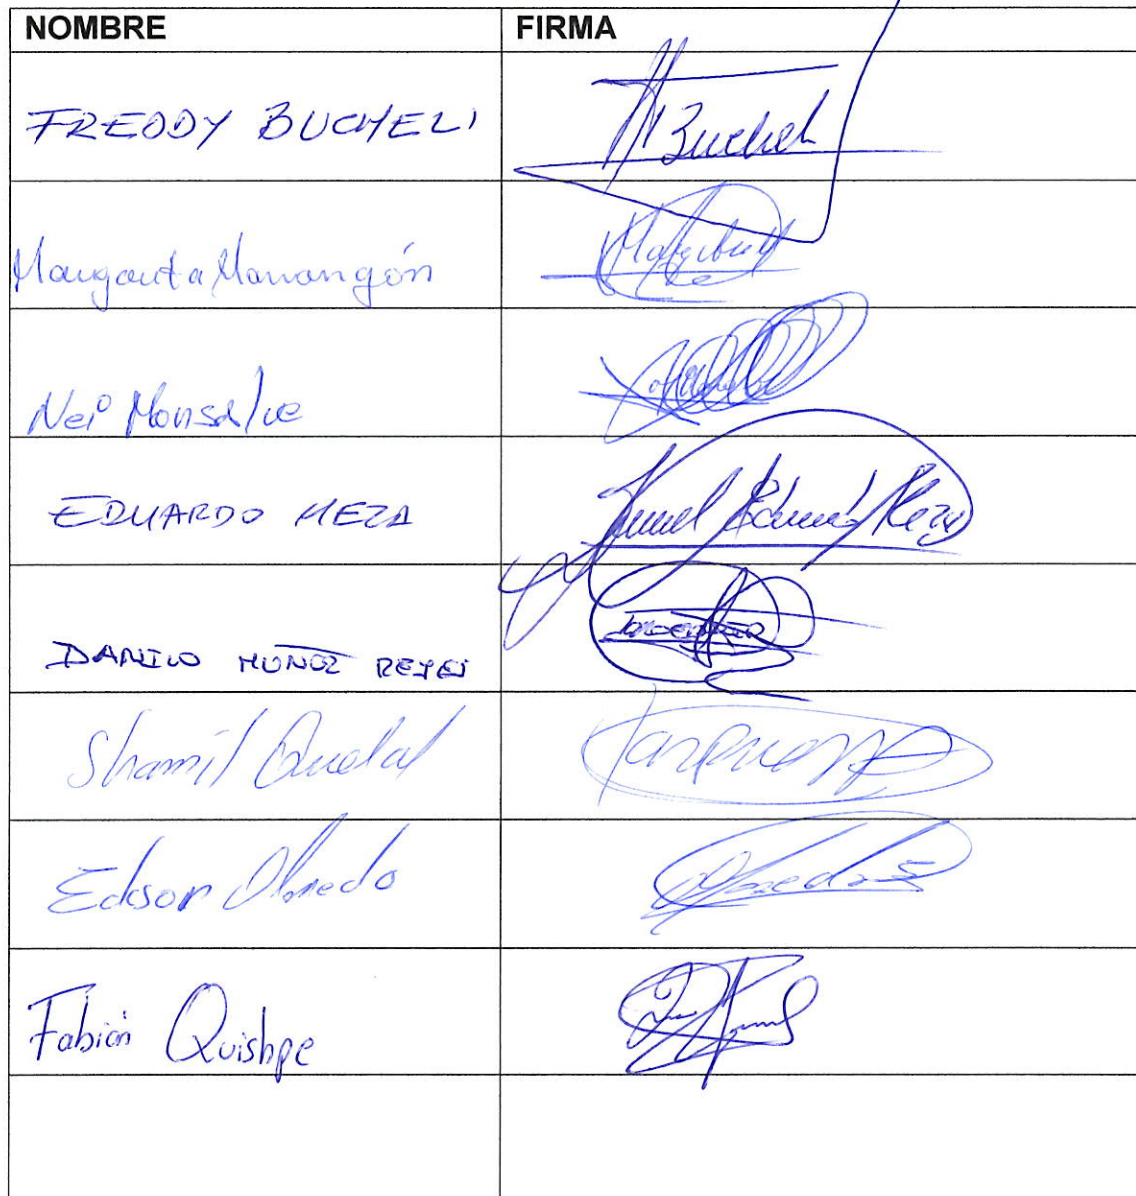 NOMBRE FIRMA
FREDDY BUCHELI Bucheli
Margarita Manangón
Nei Monsalve
EDUARDO MEZA Manuel Eduardo Meza
DANILO MUÑOZ REYES
Shamil Quelal
Edison Olmedo Olmedo
Fabián Quishpe